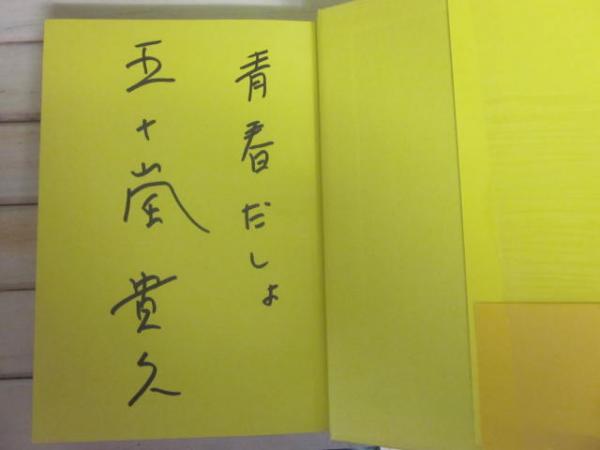 青春だしょ
五十嵐貴久